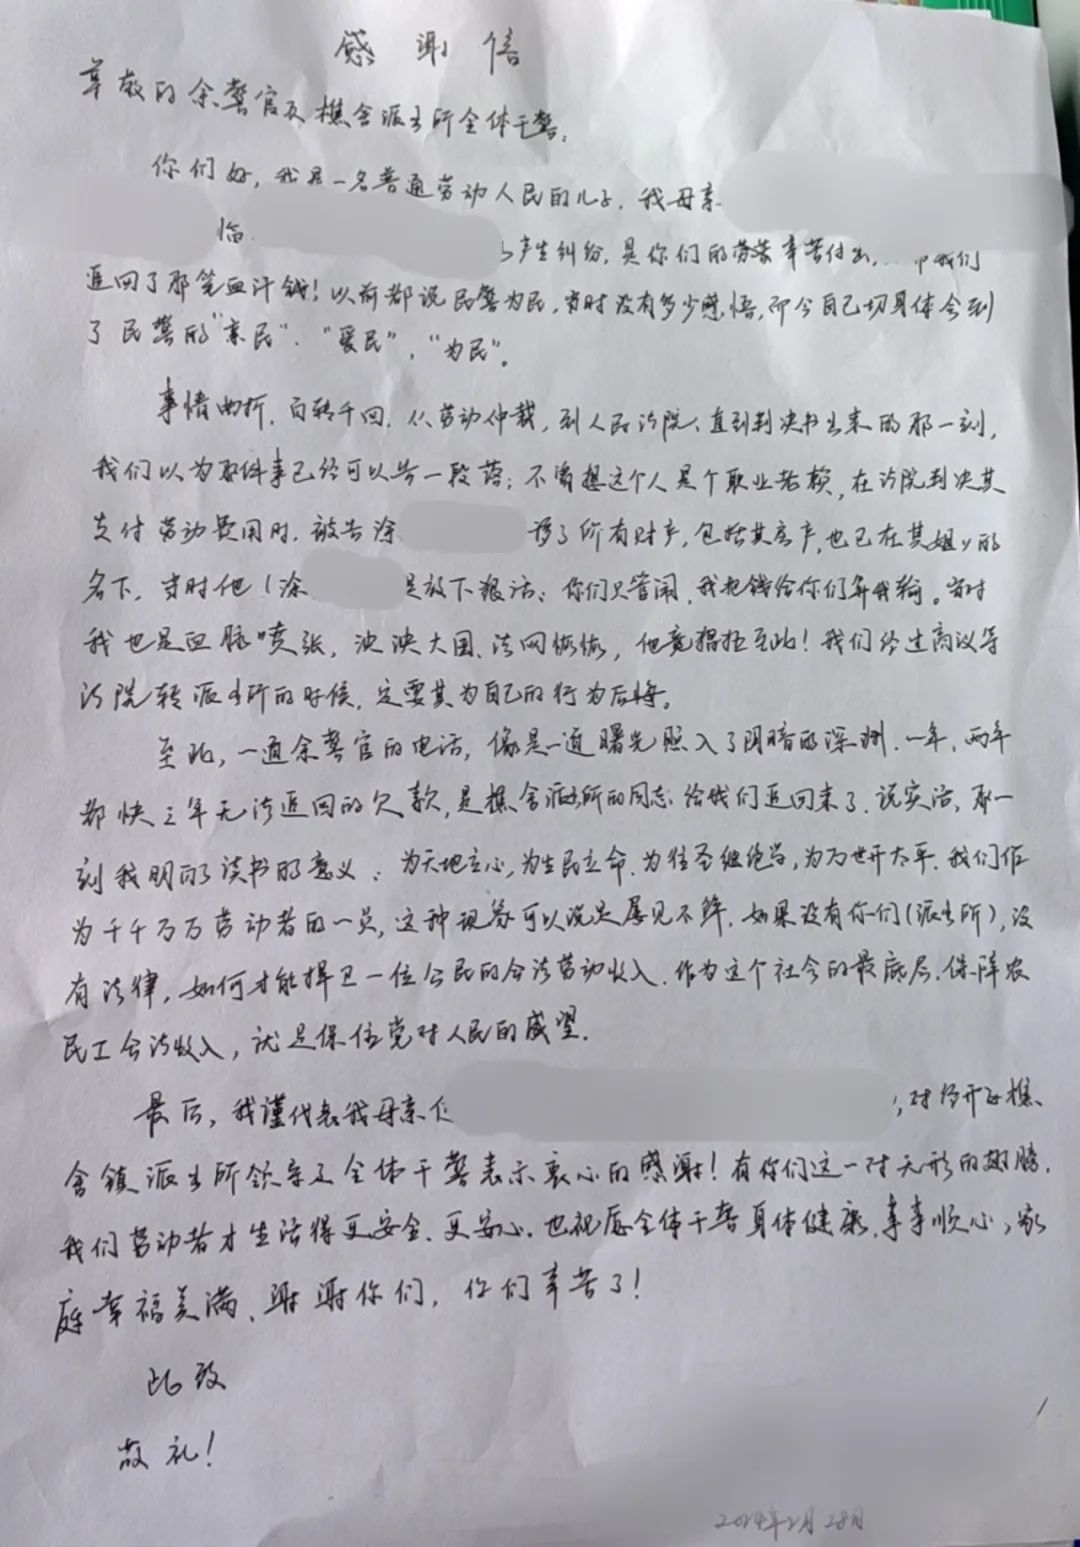 感谢信
尊敬的余警官及樵舍派出所全体干警,
你们好,我是一名普通劳动人民的儿子,我母亲
临
产生纠纷,是你们的劳苦辛苦付出,我们
追回了那笔血汗钱!以前都说民警为民,当时没有多少感悟,而今自己切身体会到
了民警的"亲民"、"爱民"、"为民"。
事情曲折,百转千回,从劳动仲裁,到人民法院、直到判决书出来的那一刻,
我们以为那件事已经可以告一段落;不曾想这个人是个职业老赖,在法院判决其
支付劳动费用时,被告涂 移了所有财产,包括其房产,也已在其姐姐的
名下,当时他(涂 是放下狠话:你们只管闹,我把钱给你们算我输。当时
我也是血脉喷张,泱泱大国、法网恢恢,他竟猖狂至此!我们经过商议等
法院转派出所的时候,定要其为自己的行为后悔。
至此,一通余警官的电话,像是一道曙光照入了阴暗的深渊.一年,两年
都快三年无法追回的欠款,是樵舍派出所的同志给我们追回来了.说实话,那一
刻我明白了读书的意义:为天地立心,为生民立命.为往圣继绝学,为万世开太平.我们作
为千千万万劳动者的一员,这种现象可以说是屡见不鲜.如果没有你们(派出所),没
有法律,如何才能捍卫一位公民的合法劳动收入.作为这个社会的最底层.保障农
民工合法收入,就是保住党对人民的威望.
最后,我谨代表我母亲 ,对经开区樵
舍镇派出所领导及全体干警表示衷心的感谢!有你们这一对无形的翅膀.
我们劳动者才生活得更安全、更安心.也祝愿全体干警身体健康、事事顺心,家
庭幸福美满、谢谢你们,你们辛苦了!
此致
敬礼!
2024年2月28日